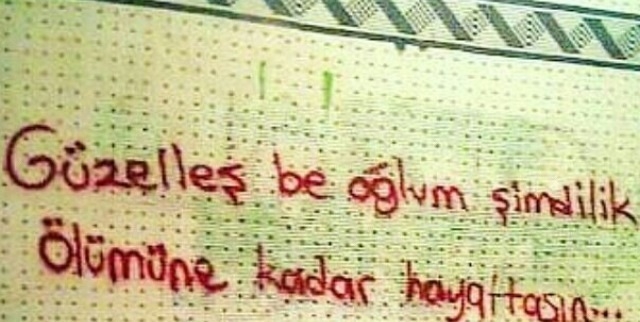 Güzelleş be oğlum şimdilik
Ölümüne kadar hayattasın...